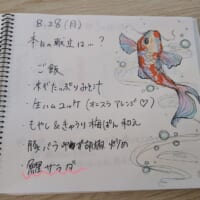 8.28(月)
本日の献立は…?
ご飯
・木がたっぷりみそ汁
・生ハムユッケ(オニスラアレンジ♡)
・もやし&きゅうり梅ぽん和え
・豚バラ 胡椒炒め
・鰹サラダ